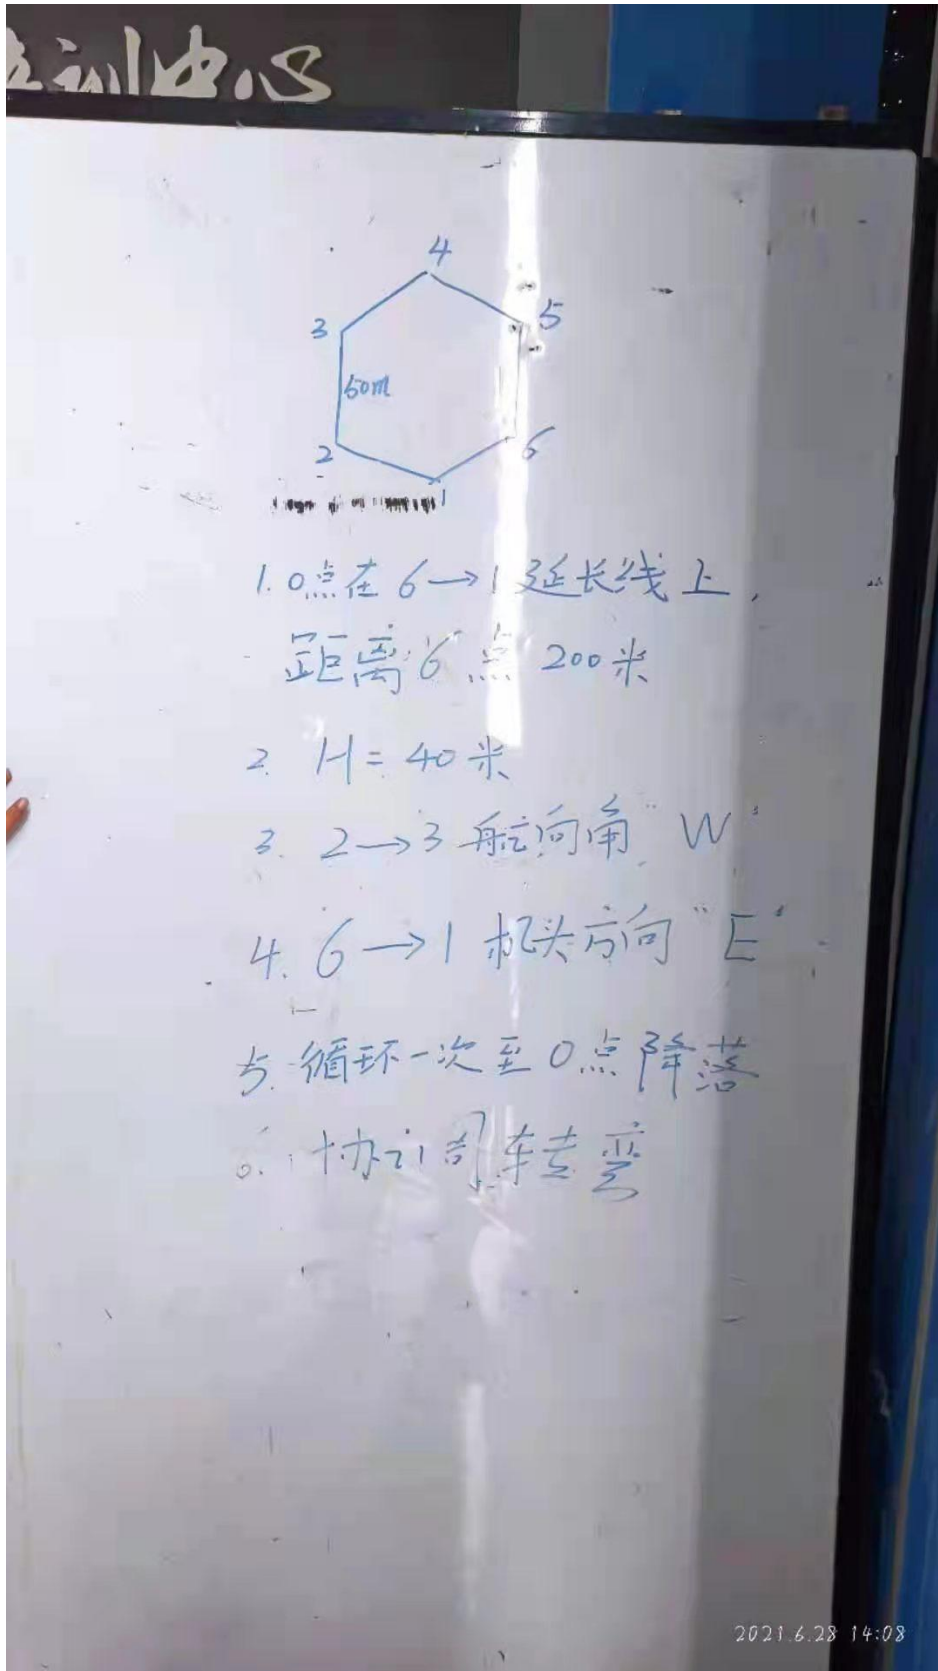 培训中心
4
3
5
50m
2
6
1
1. 0点在6→1延长线上,
距离6点 200米
2. H=40米
3. 2→3 航向角"W"
4. 6→1 机头方向"E"
5. 循环一次至0点降落
6. 协调转弯
2021.6.28 14:08